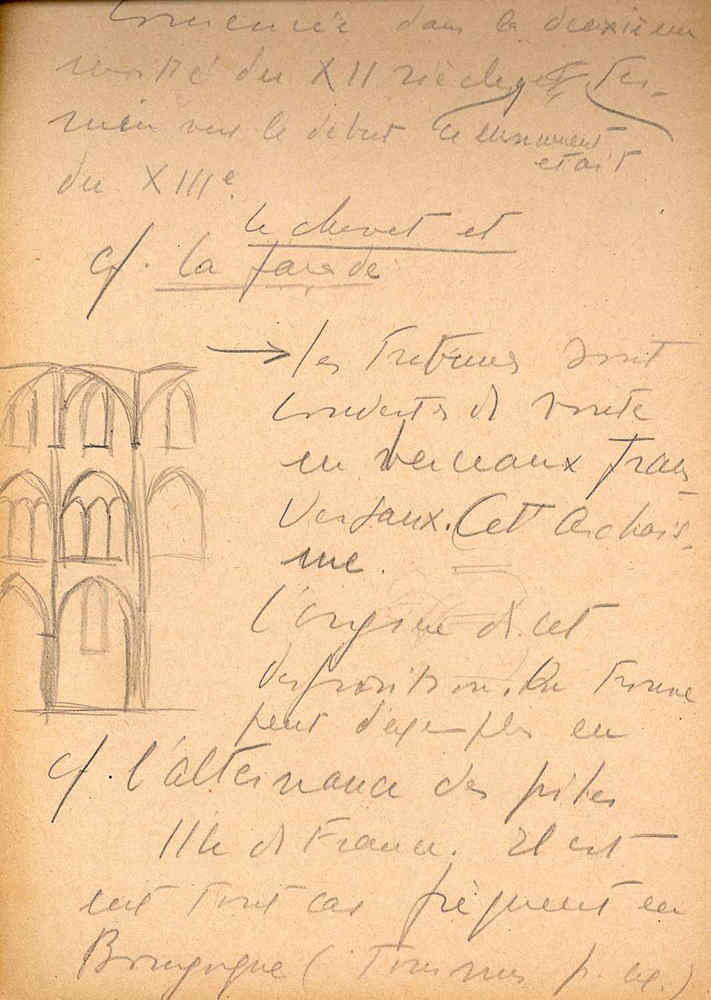 Commencée dans la deuxième
moitié du XII siècle et ter-
miné vers le début ce monument
était
du XIIIe.
le chevet et
cf. la façade
→ les Tribunes sont
couvertes de voute
en berceaux Trans-
versaux. (Cet archaïs-
me.
l'origine de cet
disposition. On trouve
peut d'exemples en
cf. l'alternance des piles
Ile de France. Il est
en tout cas fréquent en
Bourgogne (Tournus p. ex.)